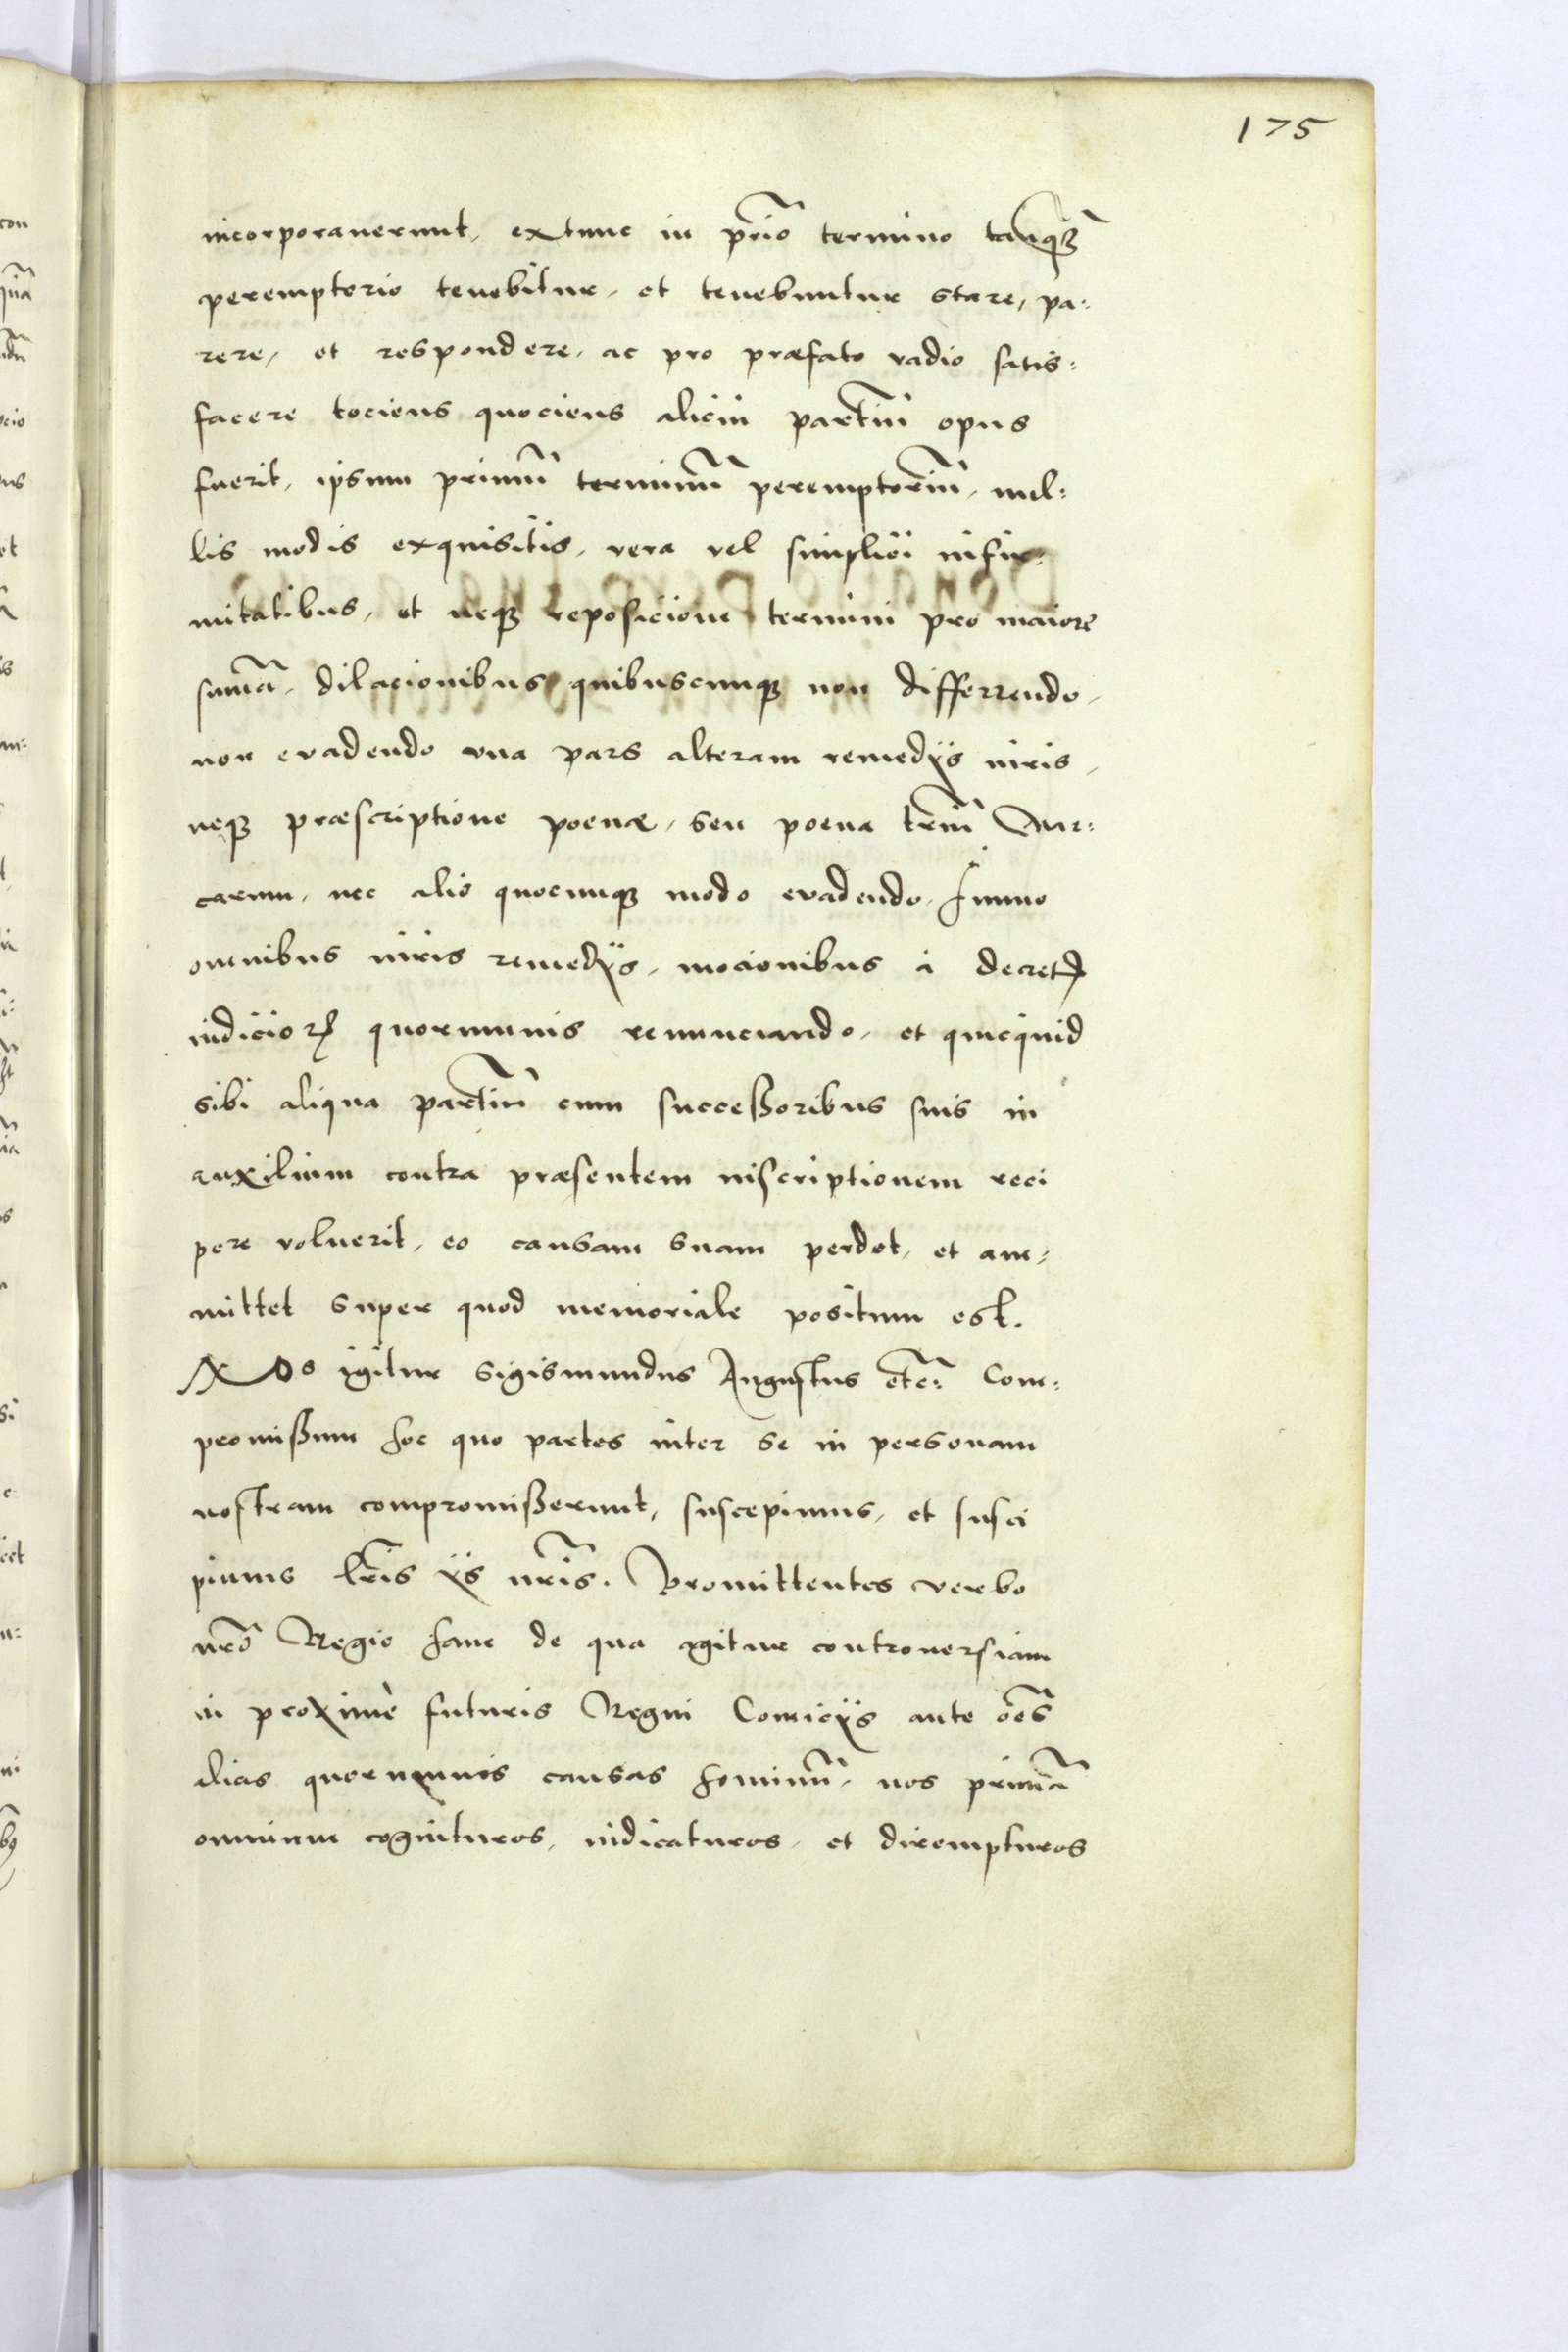 175
incorporauerunt, extunc in pri͞o termino tanqȝ͂
peremptorio tenebitur, et tenebuntur stare, pa:
rere, et respondere, ac pro præfato vadio satis:
facere tociens quociens alicui partiu͂ opus
fuerit, ipsum primu͂ terminu͂ peremptoriu͂, nul:
lis modis exquisitis, vera vel simplici infir:
mitatibus, et neqȝ reposicione termini pro maiore
suma͂, dilacionibus quibuscunqȝ non differrendo,
non euadendo vna pars alteram remedÿs iuris,
neqȝ præscriptione poenæ, seu poena triu͂ Mar:
carum, nec alio quocunqȝ modo euadendo, Immo
omnibus iuris remedÿs, mocionibus à decretꝭ
iudicioꝝ quorumuis renunciando, et quicquid
sibi aliqua partiu͂ cum succeßoribus suis in
auxilium contra præsentem inscriptionem reci
pere voluerit, eo causam suam perdet, et am:
mittet super quod memoriale positum est.
Nos igitur Sigismundus Augustus etc͂: Com:
promißum hoc quo partes inter se in personam
nostram compromißerunt, suscepimus, et susci
pimus lr͂is ÿs nr͂is. Promittentes verbo
nr͂o Regio hanc de qua agitur controuersiam
in proximè futuris Regni Comicÿs ante oe͂s
alias quorumuis causas hominu͂, nos prima͂
omnium cognituros, iudicaturos, et dirempturos